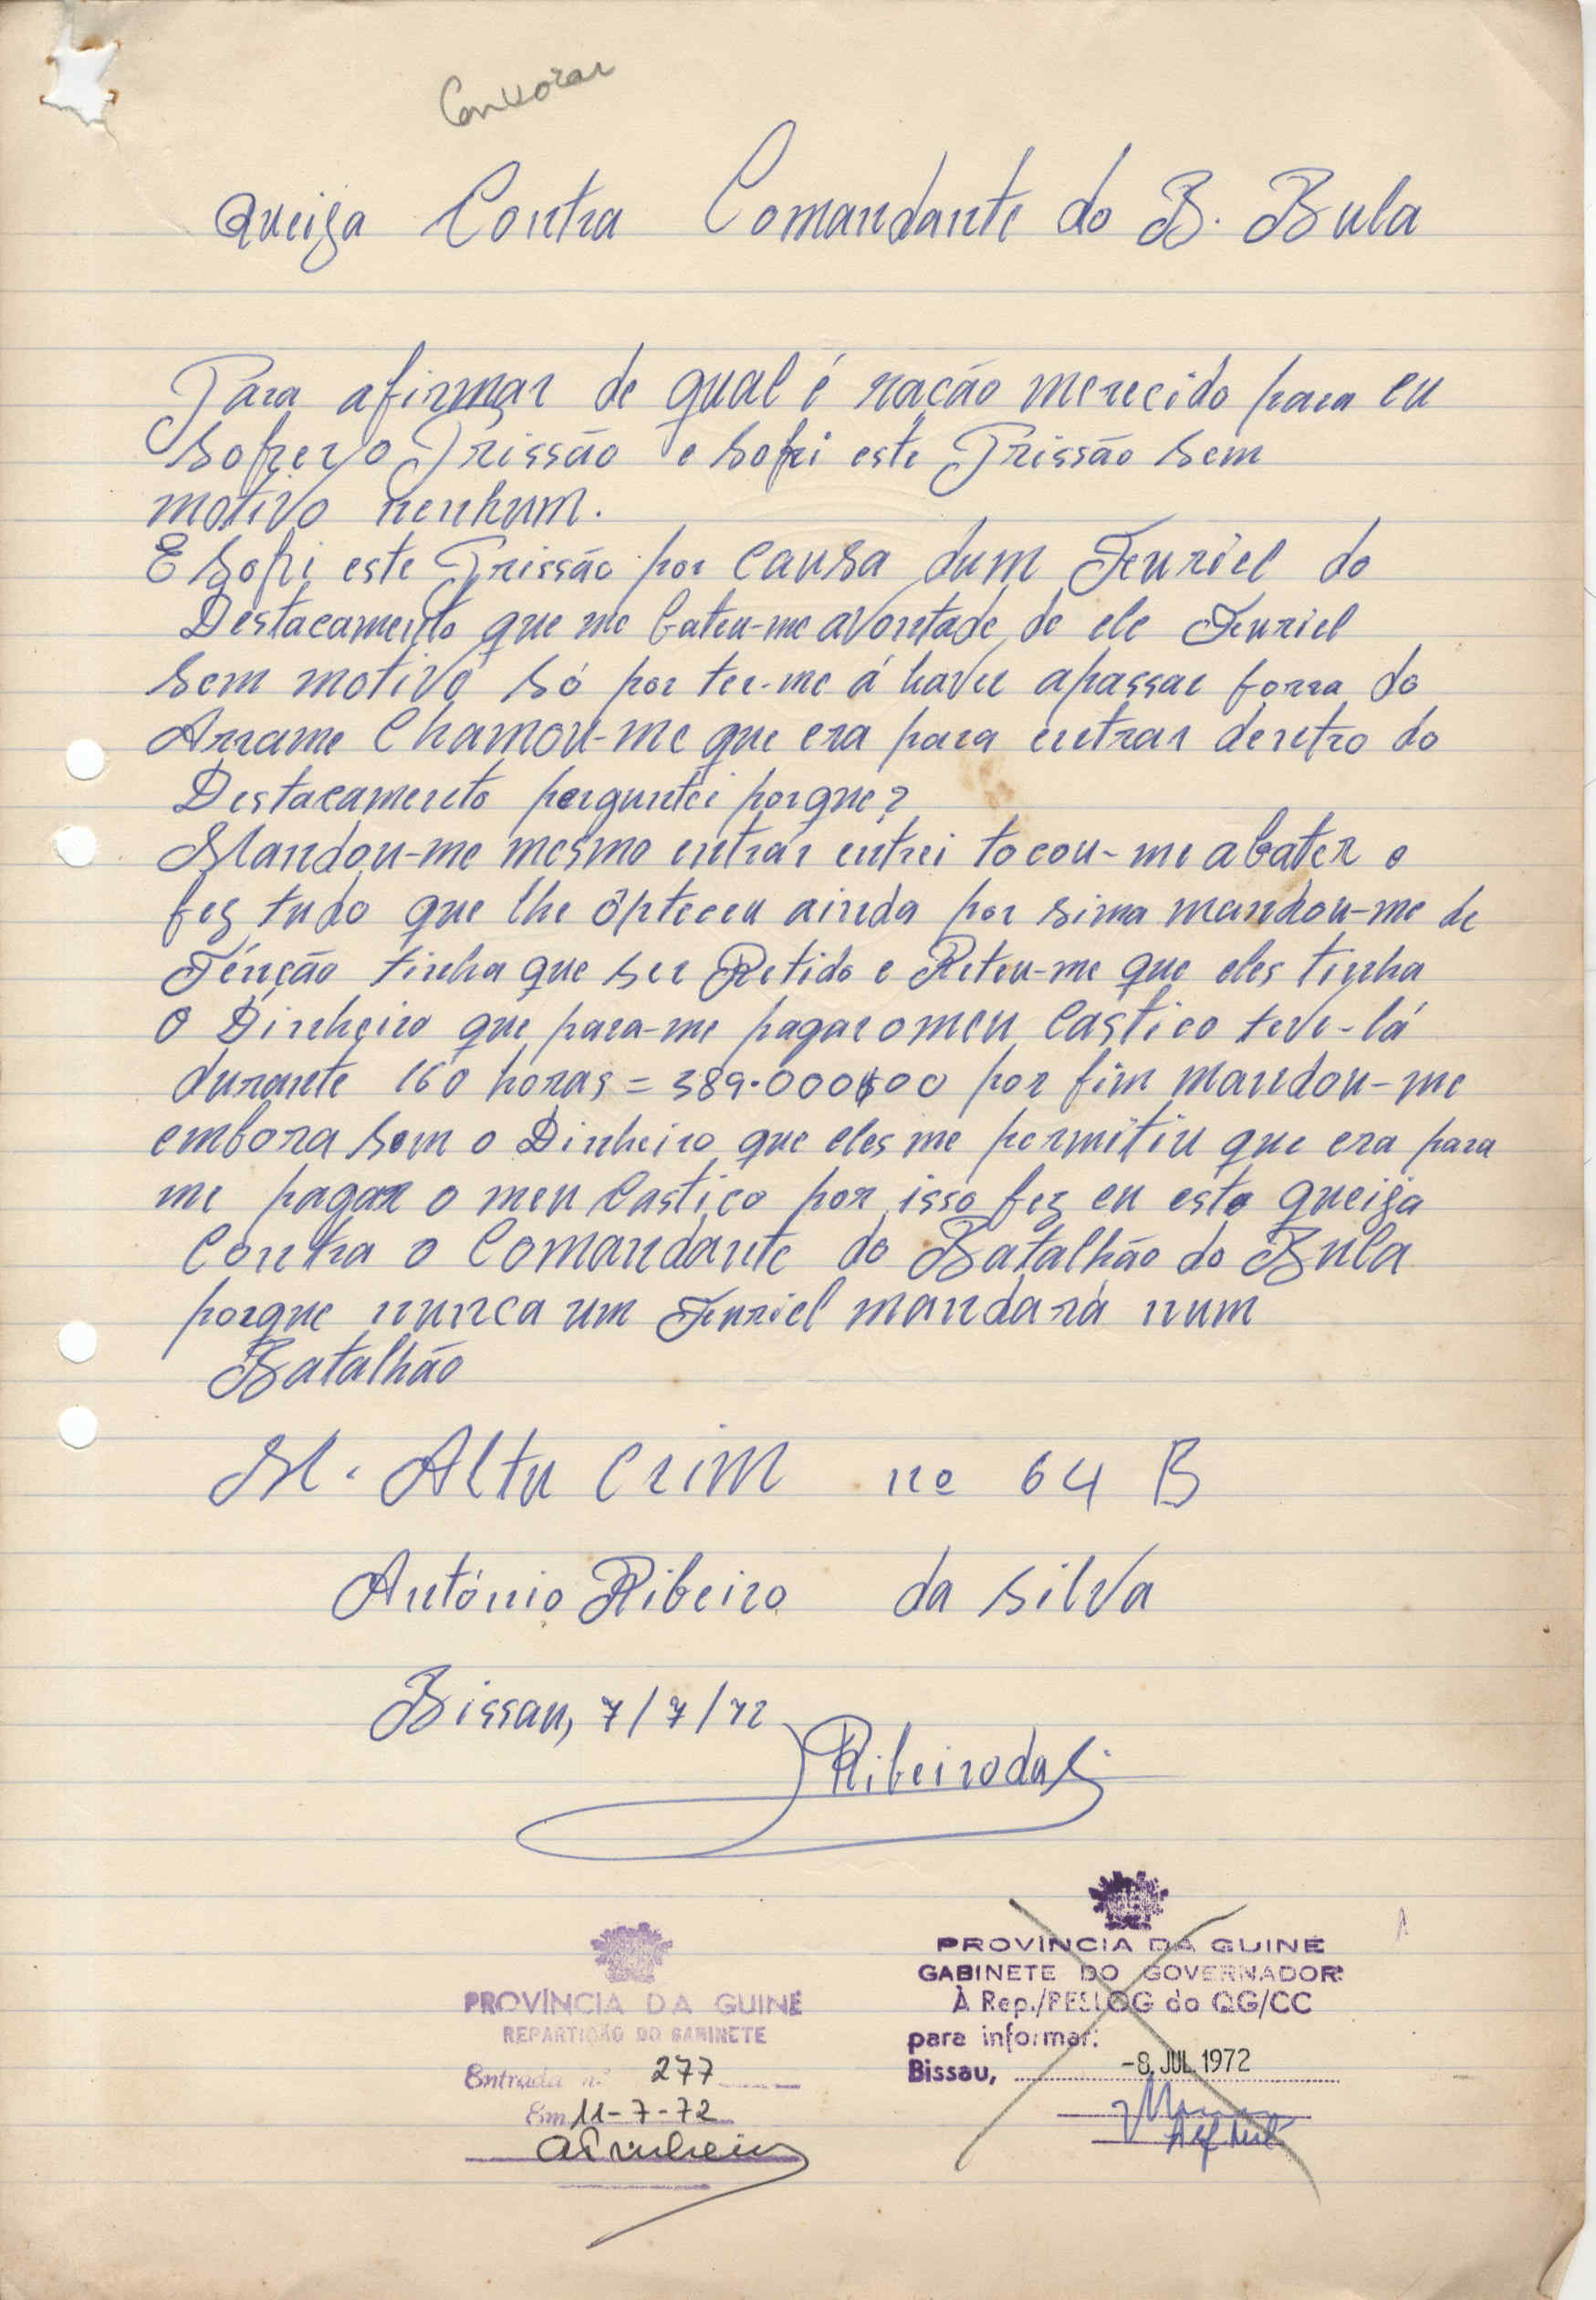 Queiga Contra Comandante do B. Bula
Para afirmar de qual é ração merecido para eu
Sofrer o Prissão e Sofri este Prissão Sem
motivo nenhum.
E Sofri este Prissão por causa dum Feuriel do
Destacamento que me bateu-me avontade de ele Feuriel
Sem motivo Só por ter-me á haver apassar forra do
Arrame Chamou-me que era para entrar dentro do
Destacamento perguntei porque?
Mandou-me mesmo entrar entrei tocou-me abater e
fez tudo que lhe ôpteceu ainda por sima mandou-me de
Fénção tinha que ser Retido e Reteu-me que eles tinha
O Dinheiro que para-me pagar o meu Castico teve-lá
durante 160 horas = 389.000$00 por fim mandou-me
embora Sem o Dinheiro que eles me permitiu que era para
me pagar o meu Castico por isso fez eu esta queiga
Contra o Comandante do Batalhão do Bula
porque nunca um Feuriel mandará num
Batalhão
M. Altu Crim nº 64 B
António Ribeiro da Silva
Bissau, 7/7/72
Ribeiro da S.
PROVÍNCIA DA GUINÉ
GABINETE DO GOVERNADOR
À Rep./PESLOG do QG/CC
para informar.
Bissau, -8. JUL. 1972
PROVÍNCIA DA GUINÉ
REPARTIÇÃO DO GABINETE
Entrada n.º 277
Em 11-7-72